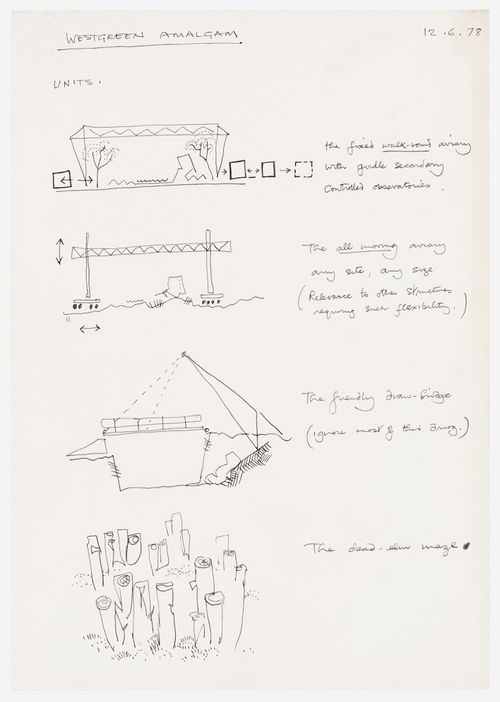 WESTGREEN AMALGAM
12.6.78
UNITS.
the fixed walk-round aviary
with girdle secondary
controlled observatories.
The all moving aviary
any site, any size
(Relevance to other structures
requiring such flexibility.)
The friendly draw-bridge
(ignore most of this drwg.)
The dead-elm maze